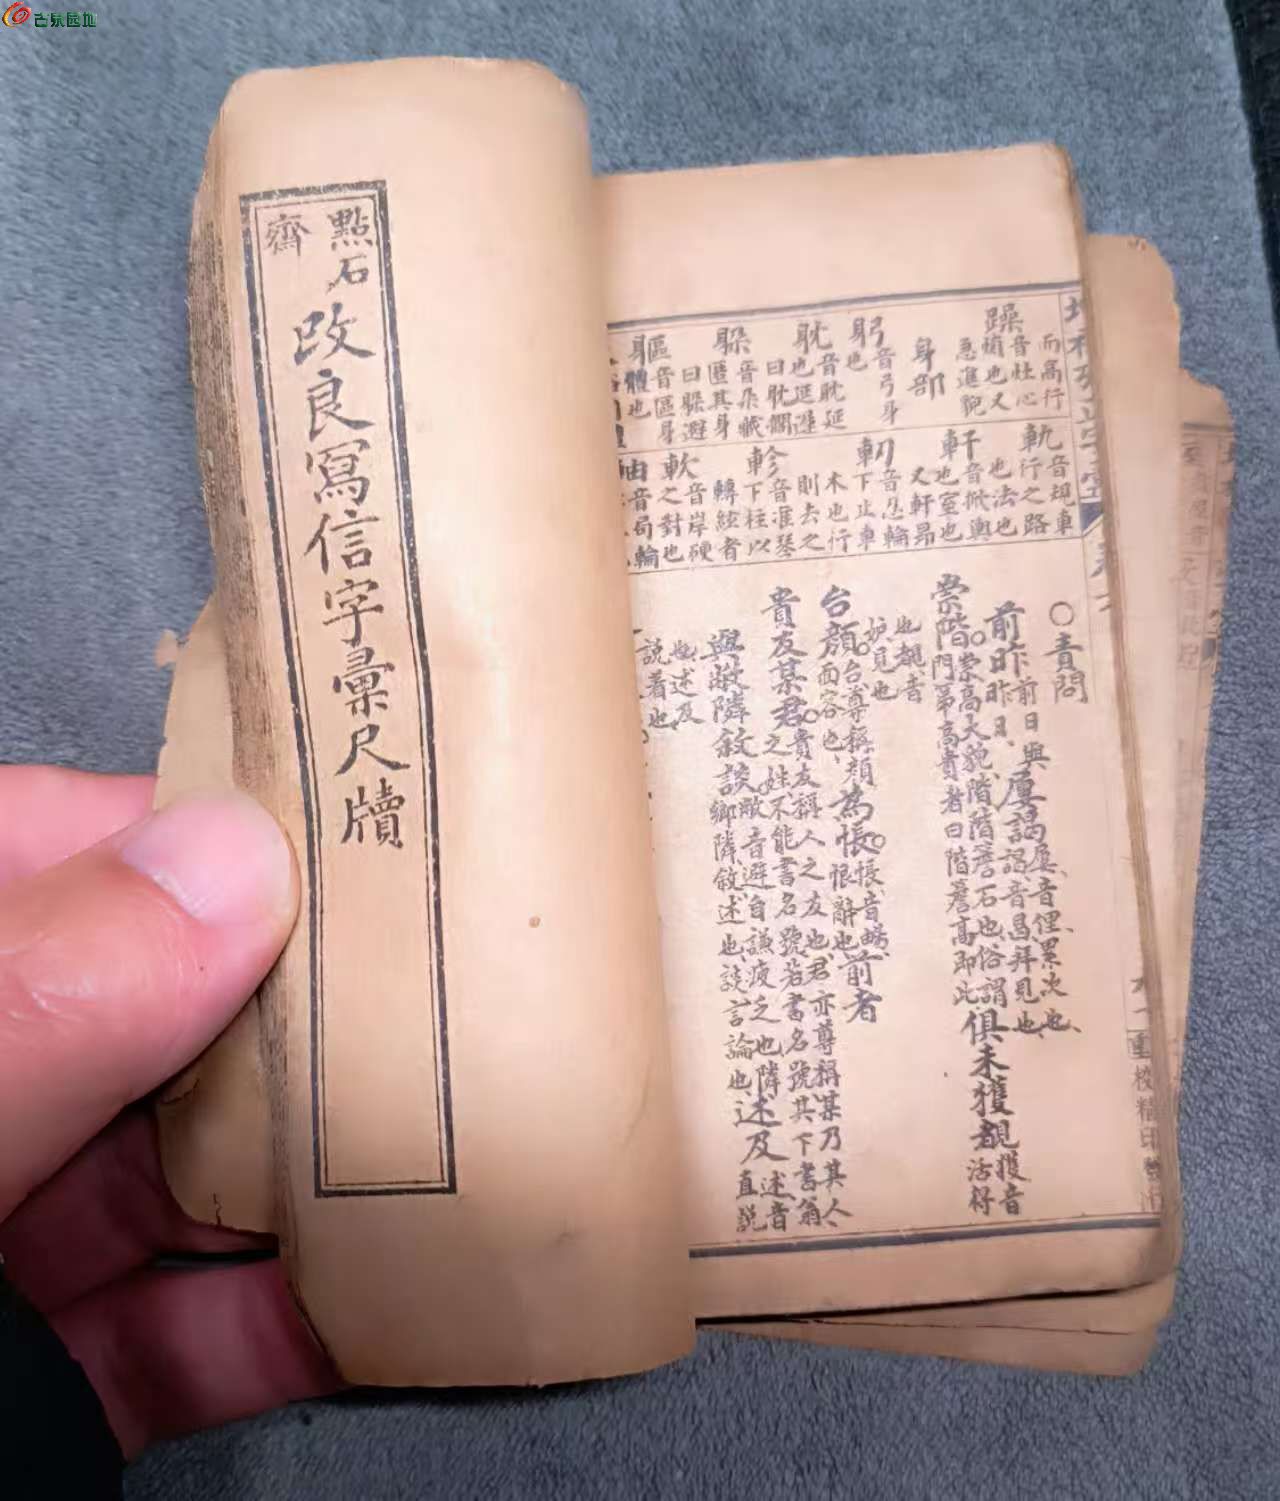 點石齋
改良寫信字彙尺牘
躁音灶心而高行
急進貌
身部
躬音弓身也
耽音耽延也延遲曰耽擱
躲音朵藏匿其身曰躲避
軀音區身體也
軌音規車行之路也法也
軒音掀輿也室也又軒昂
軔音忍輪下止車木也行則去之
軫音准琴下柱以轉絃者
軟音岸硬之對也
○責問
前昨前日與昨日
屢謁屢音俚累次也謁音曷拜見也
崇階崇高大貌階階簷石也俗謂門第高貴者曰階簷高即此
俱未獲覩獲音活好也覩音妒見也
台顏台尊稱顏面容也
為悵悵音暢恨辭也
前者
貴友某君貴友稱人之友也君亦尊稱某乃其人之姓不能書名號若書名號其下書翁
與敝隣敘談敝音避自謙疲乏也隣鄉隣敘述也談言論也
述及述音直說也述及說着也
重校精印